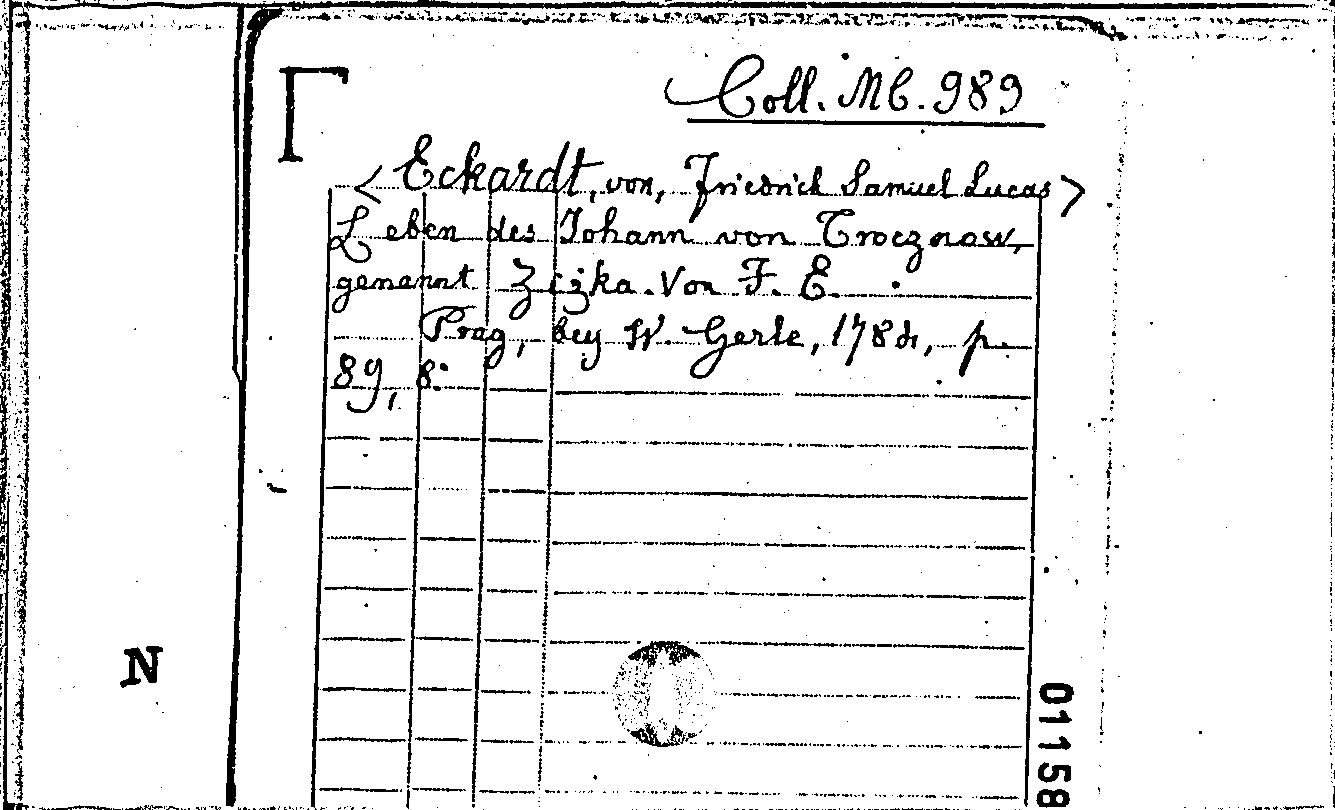 Coll. MC. 989
< Eckardt, von, Friedrich Samuel Lucas >
Leben des Johann von Trocznow,
genannt Zizka. Von F. E.
Prag, bey W. Gerle, 1784, p.
89, 8°
N
01158